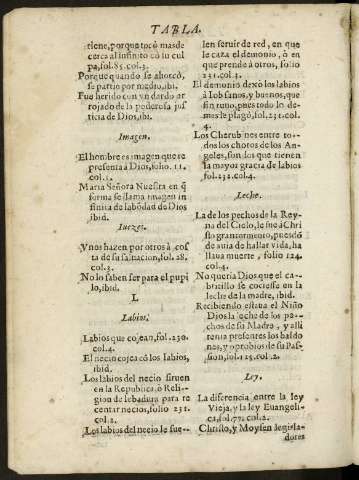 TABLA.
tiene, porque tocò mas de
cerca al infinito cō su cul
pa, fol.85. col.3.
Porque quando se ahorcò,
se partio por medio, ibi.
Fue herido con vn dardo ar
rojado de la poderosa jus
ticia de Dios, ibi.
Imagen.
El hombre es imagen que re
presenta à Dios, folio. 11.
col.1.
Maria Señora Nuestra en q̄
forma se llama imagen in
finita de la bōdad de Dios
ibid.
Iuezes.
Y nos hazen por otros à cos
ta de su saluacion, fol.28.
col.3.
No lo saben ser para el pupi
lo, ibid.
L
Labios.
Labios que cojean, fol.230.
col.4.
El necio cojea cō los labios,
ibid.
Los labios del necio siruen
en la Republica, ò Reli-
gion de lebadura para re
centar necios, folio 231.
col.2.
Los labios del necio le sue-
len seruir de red, en que
le caza el demonio, ò en
que prende à otros, folio
231. col.3.
El demonio dexò los labios
à Iob sanos, y buenos, que
sin tuuo, pues todo lo de-
mas le plagò, fol.231. col.
4.
Los Cherubines entre to-
dos los choros de los An-
geles, son los que tienen
la mayor gracia de labios
fol.232. col.4.
Leche.
La de los pechos de la Rey-
na del Cielo, le fue à Chri
sto gran tormento, puesdõ
de auia de hallar vida, ha
llaua muerte, folio 124.
col.4.
No queria Dios que el ca-
britillo se coziesse en la
leche de la madre, ibid.
Recibiendo estaua el Niño
Dios la leche de los pe-
chos de su Madre, y alli
tenia presentes los baldo
nes, y oprobios de su Pas-
sion, fol.125. col.2.
Ley.
La diferencia entre la ley
Vieja, y la ley Euangeli-
ca, fol.77. col.2.
Christo, y Moysen legisla-
dores